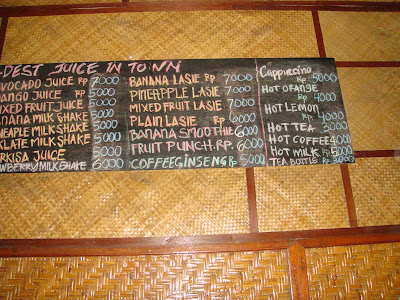 BEST JUICE IN TOWN
VOCADO JUICE Rp 7000
ANGO JUICE Rp 5000
IXED FRUIT JUICE 5000
NANA MILKSHAKE 5000
NEAPLE MILK SHAKE 5000
KLATE MILK SHAKE 5000
RKISA JUICE 5000
WBERRY MILK SHAKE 6000
BANANA LASIE Rp 7000
PINEAPPLE LASIE 7000
MIXED FRUIT LASIE 7000
PLAIN LASIE Rp 6000
BANANA SMOOTHIE 6000
FRUIT PUNCH. Rp. 6000
COFFEEGINSENG Rp 5000
Cappuccino Rp 5000
HOT ORANGE Rp 4000
HOT LEMON Rp 4000
HOT TEA 3000
HOT COFFEE 4000
HOT MILK Rp 5000
TEA BOTTLE Rp 3000